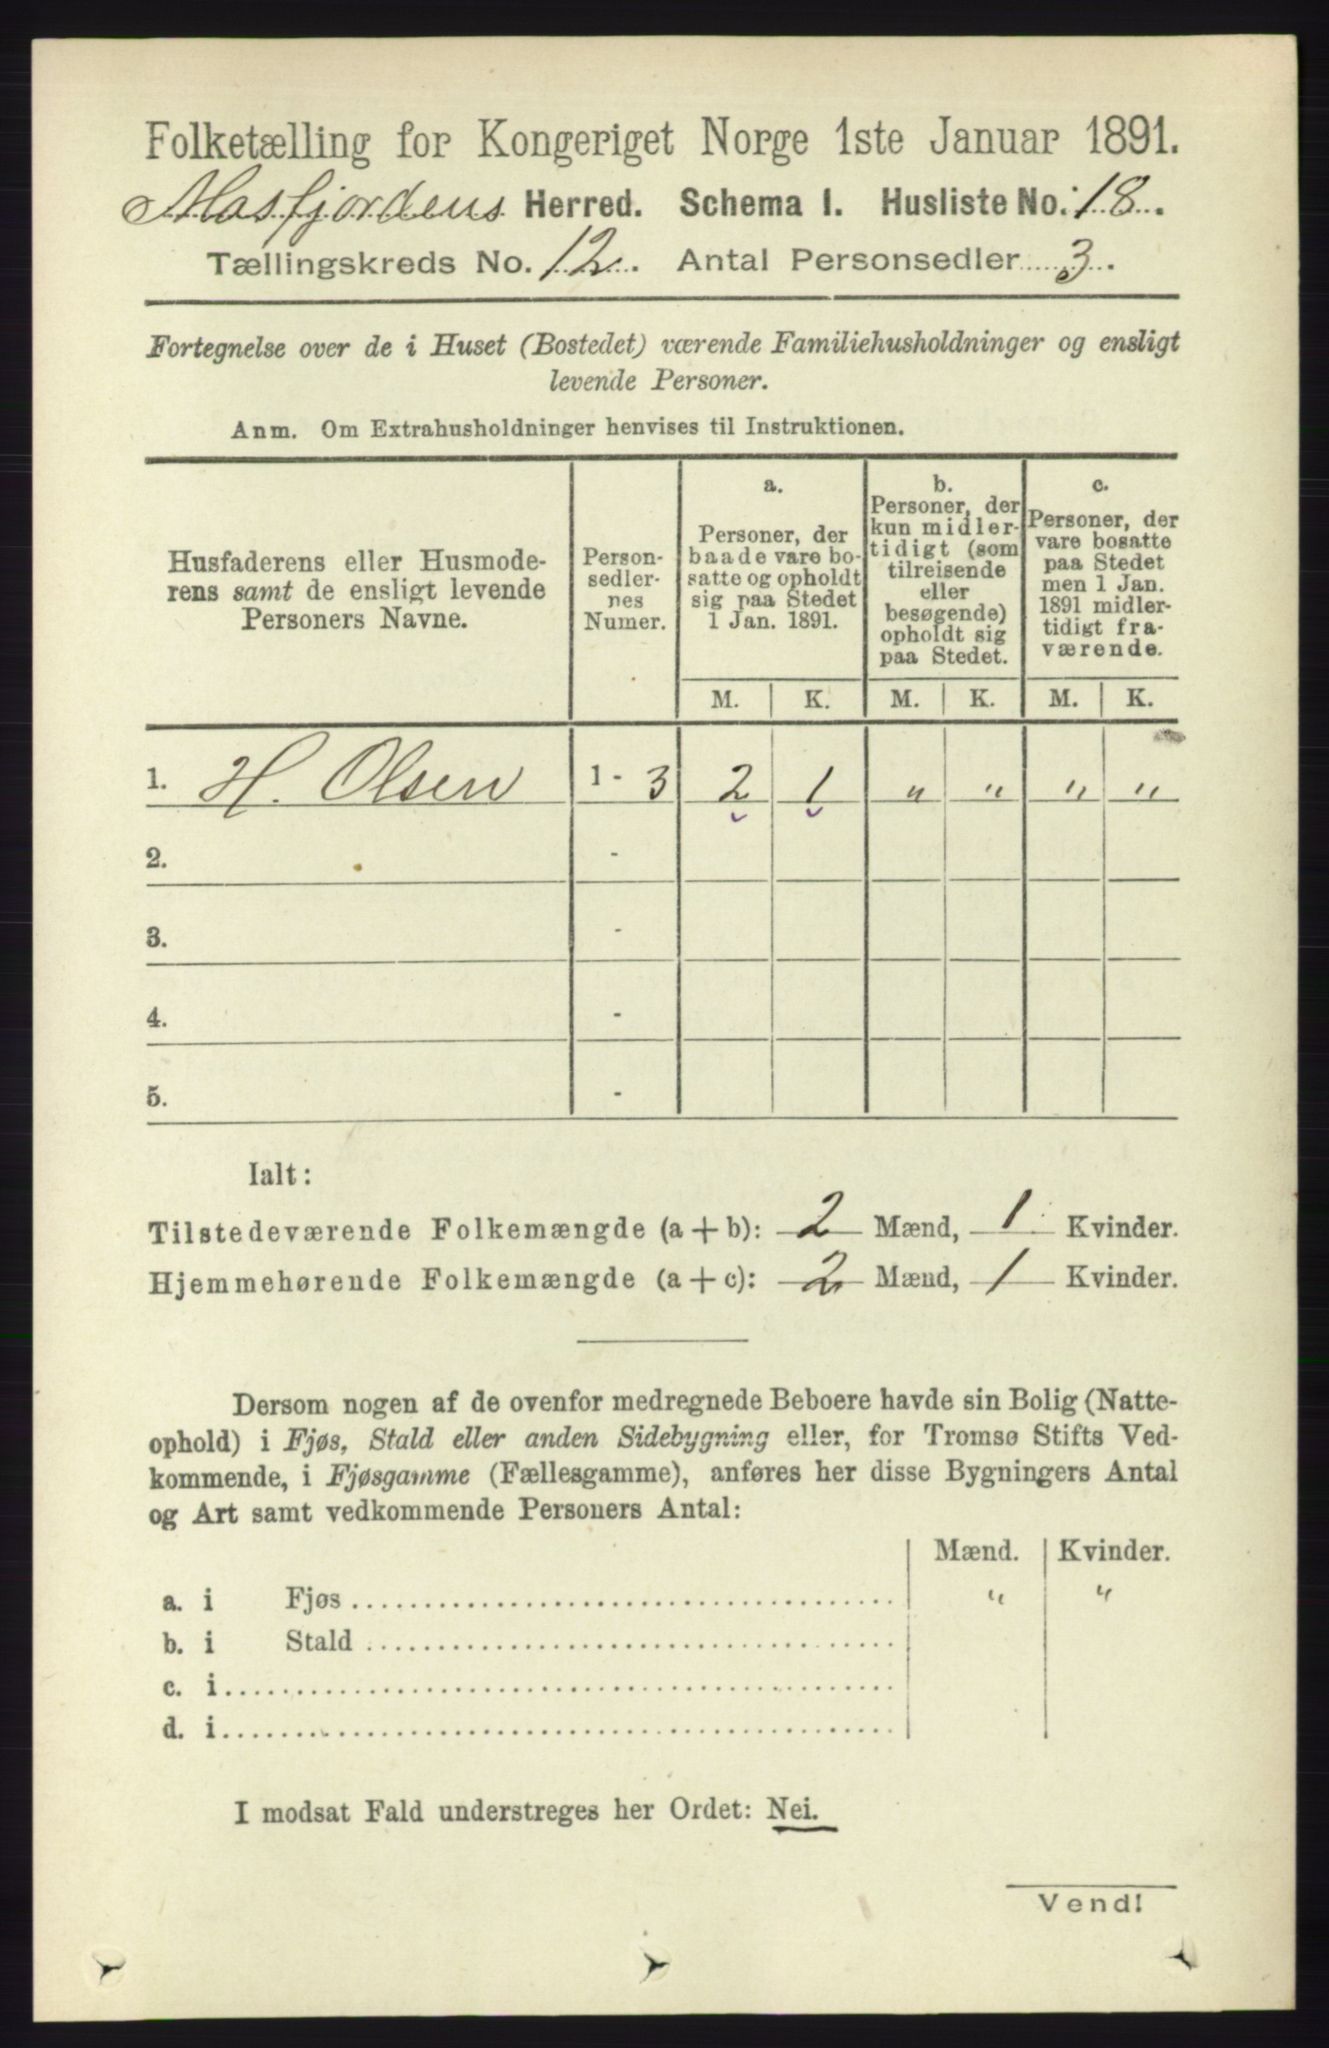 Folketælling for Kongeriget Norge 1ste Januar 1891.
Masfjordens Herred. Schema I. Husliste No. 18.
Tællingskreds No. 12. Antal Personsedler 3.
Fortegnelse over de i Huset (Bostedet) værende Familiehusholdninger og ensligt
levende Personer.
Anm. Om Extrahusholdninger henvises til Instruktionen.
Husfaderens eller Husmode-
rens samt de ensligt levende
Personers Navne.
Person-
sedler-
nes
Numer.
a.
Personer, der
baade vare bo-
satte og opholdt
sig paa Stedet
1 Jan. 1891.
b.
Personer, der
kun midler-
tidigt (som
tilreisende
eller
besøgende)
opholdt sig
paa Stedet.
c.
Personer, der
vare bosatte
paa Stedet
men 1 Jan.
1891 midler-
tidigt fra-
værende.
M. K. M. K. M. K.
1. H. Olsen 1 - 3 2 1 " " " "
2. -
3. -
4. -
5. -
Ialt:
Tilstedeværende Folkemængde (a + b): 2 Mænd, 1 Kvinder.
Hjemmehørende Folkemængde (a + c): 2 Mænd, 1 Kvinder.
Dersom nogen af de ovenfor medregnede Beboere havde sin Bolig (Natte-
ophold) i Fjøs, Stald eller anden Sidebygning eller, for Tromsø Stifts Ved-
kommende, i Fjøsgamme (Fællesgamme), anføres her disse Bygningers Antal
og Art samt vedkommende Personers Antal:
Mænd. Kvinder.
a. i Fjøs " "
b. i Stald
c. i
d. i
I modsat Fald understreges her Ordet: Nei.
Vend!